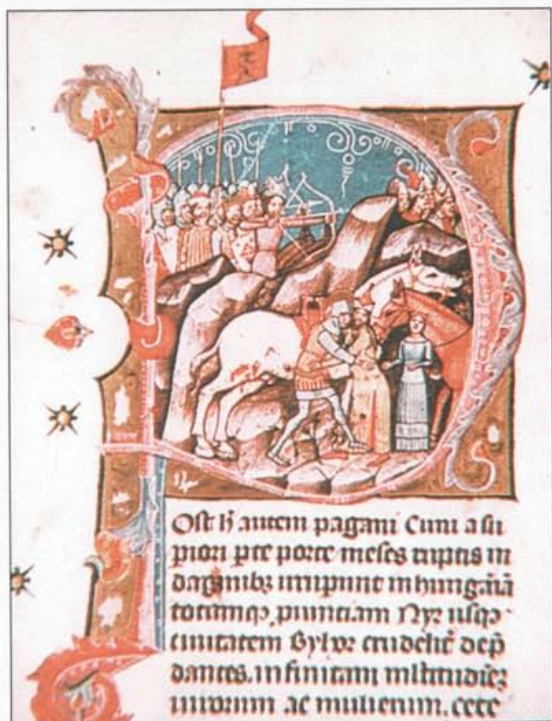 Post h̄ autem pagani Cuni a su
piori pte porte meses ruptis in
daginibꝫ irripunt in hungaiā
totamqꝫ puintiam Nyr usqꝫ
ciuitatem Byhor crudelit̄ dep̄
dantes. infinitam mltitudīeꝫ
uirorum ac mulierum. cete